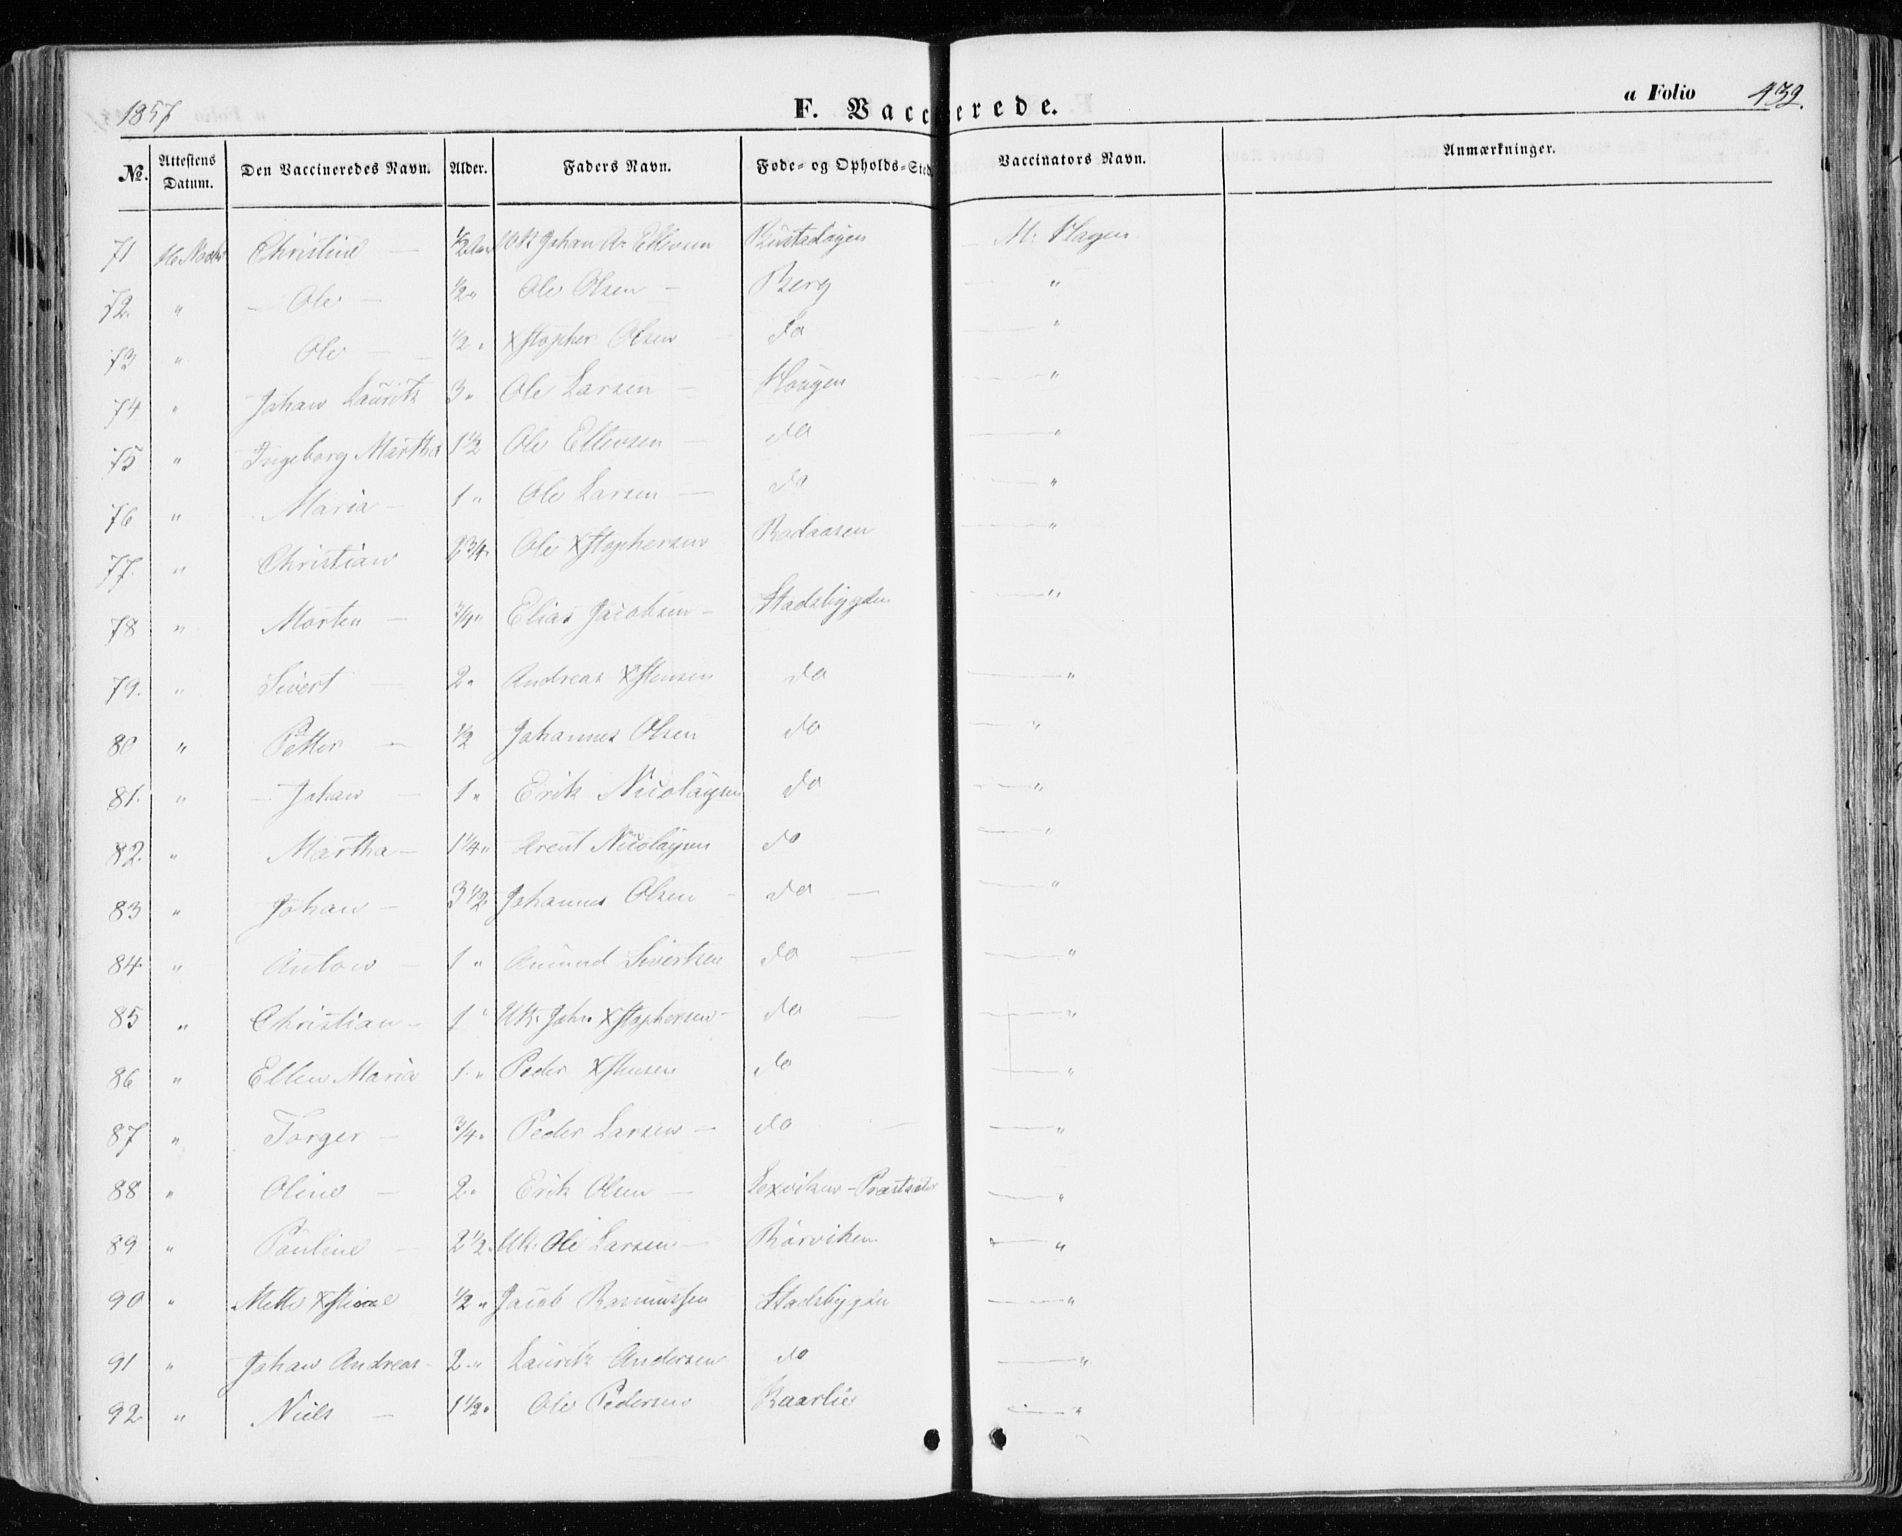 1857 F. Vaccinerede. a Folio 439.
No. Attestens Datum. Den Vaccineredes Navn. Alder. Faders Navn. Føde- og Opholds-Sted. Vaccinators Navn. Anmærkninger.
71 Christine — 1/2 Johan Ellevsen Rustadøgen — M: Hagen
72. " — Ole — 1/2 " Ole Olsen — Berg — "
73 " Ole — 1/2 " Xstopher Olsen — do — "
74 " Johan Lauritz 3 " Ole Larsen — Haugen — "
75 " Ingeborg Martha 1 1/2 Ole Ellevsen — do — "
76 " Maria — 1 " Ole Larsen — do — "
77. " Christian 2 3/4 " Ole Xstophersen Rodaasen — "
78 " Morten — 3/4 " Elias Jacobsen — Stadsbygden — "
79. " Sivert — 2 " Andreas Xstensen do — "
80 " Petter — 1/2 Johannes Olsen do — "
81. " — Johan — 1 " Erik Nicolaysen do — "
82. " Martha — 1 1/4 " Arent Nicolaysen do — "
83 " Johan — 3 1/2 " Johannes Olsen — do — — "
84 " Anton — 1 " Amund Sivertsen do — — "
85 " Christian — 1 " Uk. Joh. Xstophersen — do — — "
86 " Ellen Maria 1 " Peder Xstensen do — "
87 " Torger — 3/4 " Peder Larsen — do — — "
88 " Oline — 2 " Erik Olsen — Lexviken — Præstsæter — "
89 " Pauline — 2 1/2 " Uk: Ole Larsen — Rørviken — "
90 " Mette Xstine 1/2 " Jacob Rasmussen Stadsbygden — "
91 " Johan Andreas — 2 " Lauritz Andersen do — "
92 " Niels — 1 1/2 " Ole Pedersen Raarlie — "